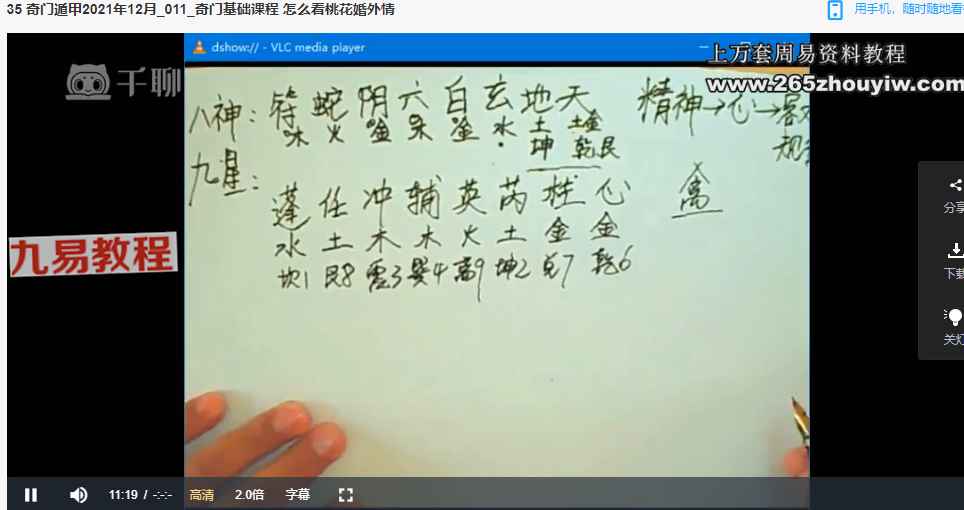 35 奇门遁甲2021年12月_011_奇门基础课程 怎么看桃花婚外情
用手机，随时随地看
dshow:// - VLC media player
上万套周易资料教程
www.265zhouyiw.com
千聊
八神：符 蛇 阴 六 白 玄 地 天
木 火 金 木 金 水 土 土金
坤 乾艮
精神→心→
九星：
蓬 任 冲 辅 英 芮 柱 心 禽
水 土 木 木 火 土 金 金
坎1 艮8 震3 巽4 离9 坤2 兑7 乾6
九易教程
分享
下载
关灯
11:19 / -:-:- 高清 2.0倍 字幕